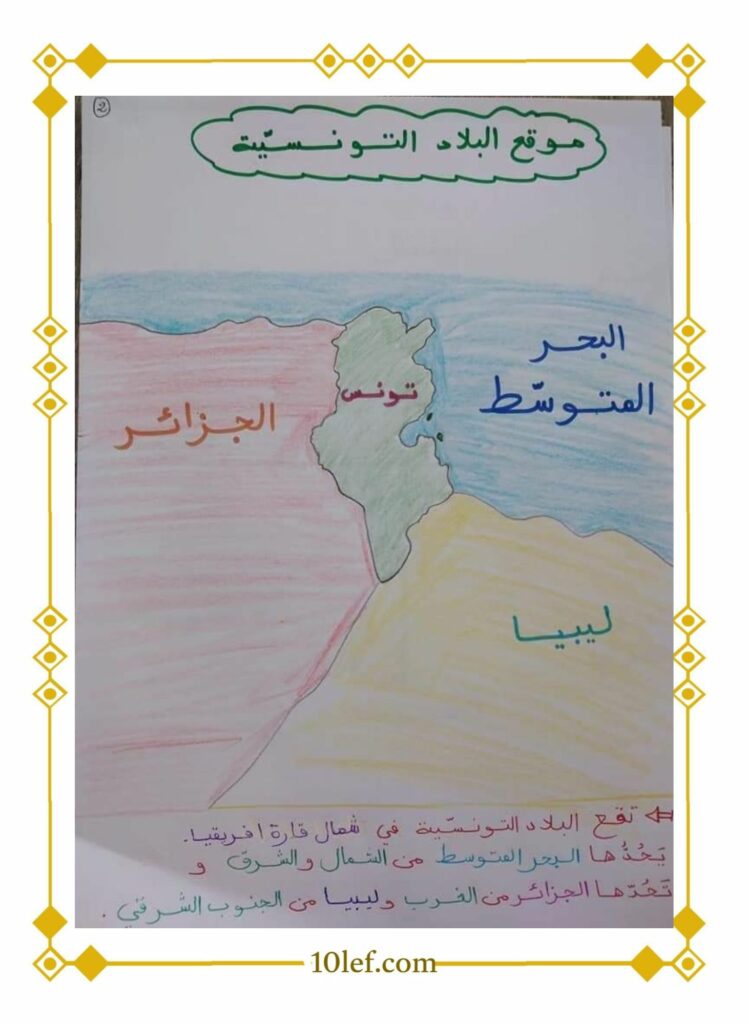 2
موقع البلاد التونسيّة
البحر
المتوسّط
تونس
الجزائر
ليبيا
تقع البلاد التونسيّة في شمال قارة افريقيا.
يَحُدُّها البحر المتوسط من الشمال والشرق و
تَحُدّها الجزائر من الغرب وليبيا من الجنوب الشرقي.
10lef.com